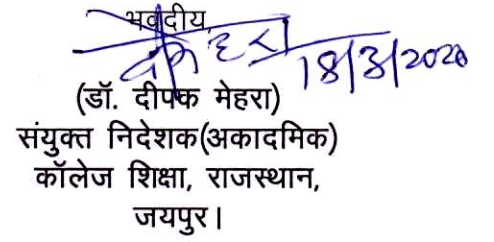 भवदीय
18/3/2020
(डॉ. दीपक मेहरा)
संयुक्त निदेशक(अकादमिक)
कॉलेज शिक्षा, राजस्थान,
जयपुर।